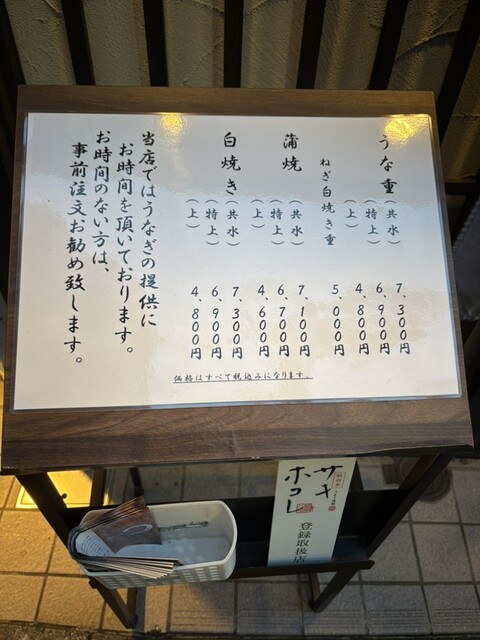 うな重(共水) 7、300円
(特上) 6、900円
(上) 4、800円
ねぎ白焼き重 5、000円
蒲焼(共水) 7、100円
(特上) 6、700円
(上) 4、600円
白焼き(共水) 7、300円
(特上) 6、900円
(上) 4、800円
当店ではうなぎの提供に
お時間を頂いております。
お時間のない方は、
事前注文お勧め致します。
価格はすべて税込みになります。
サキ
ホコレ
登録取扱店